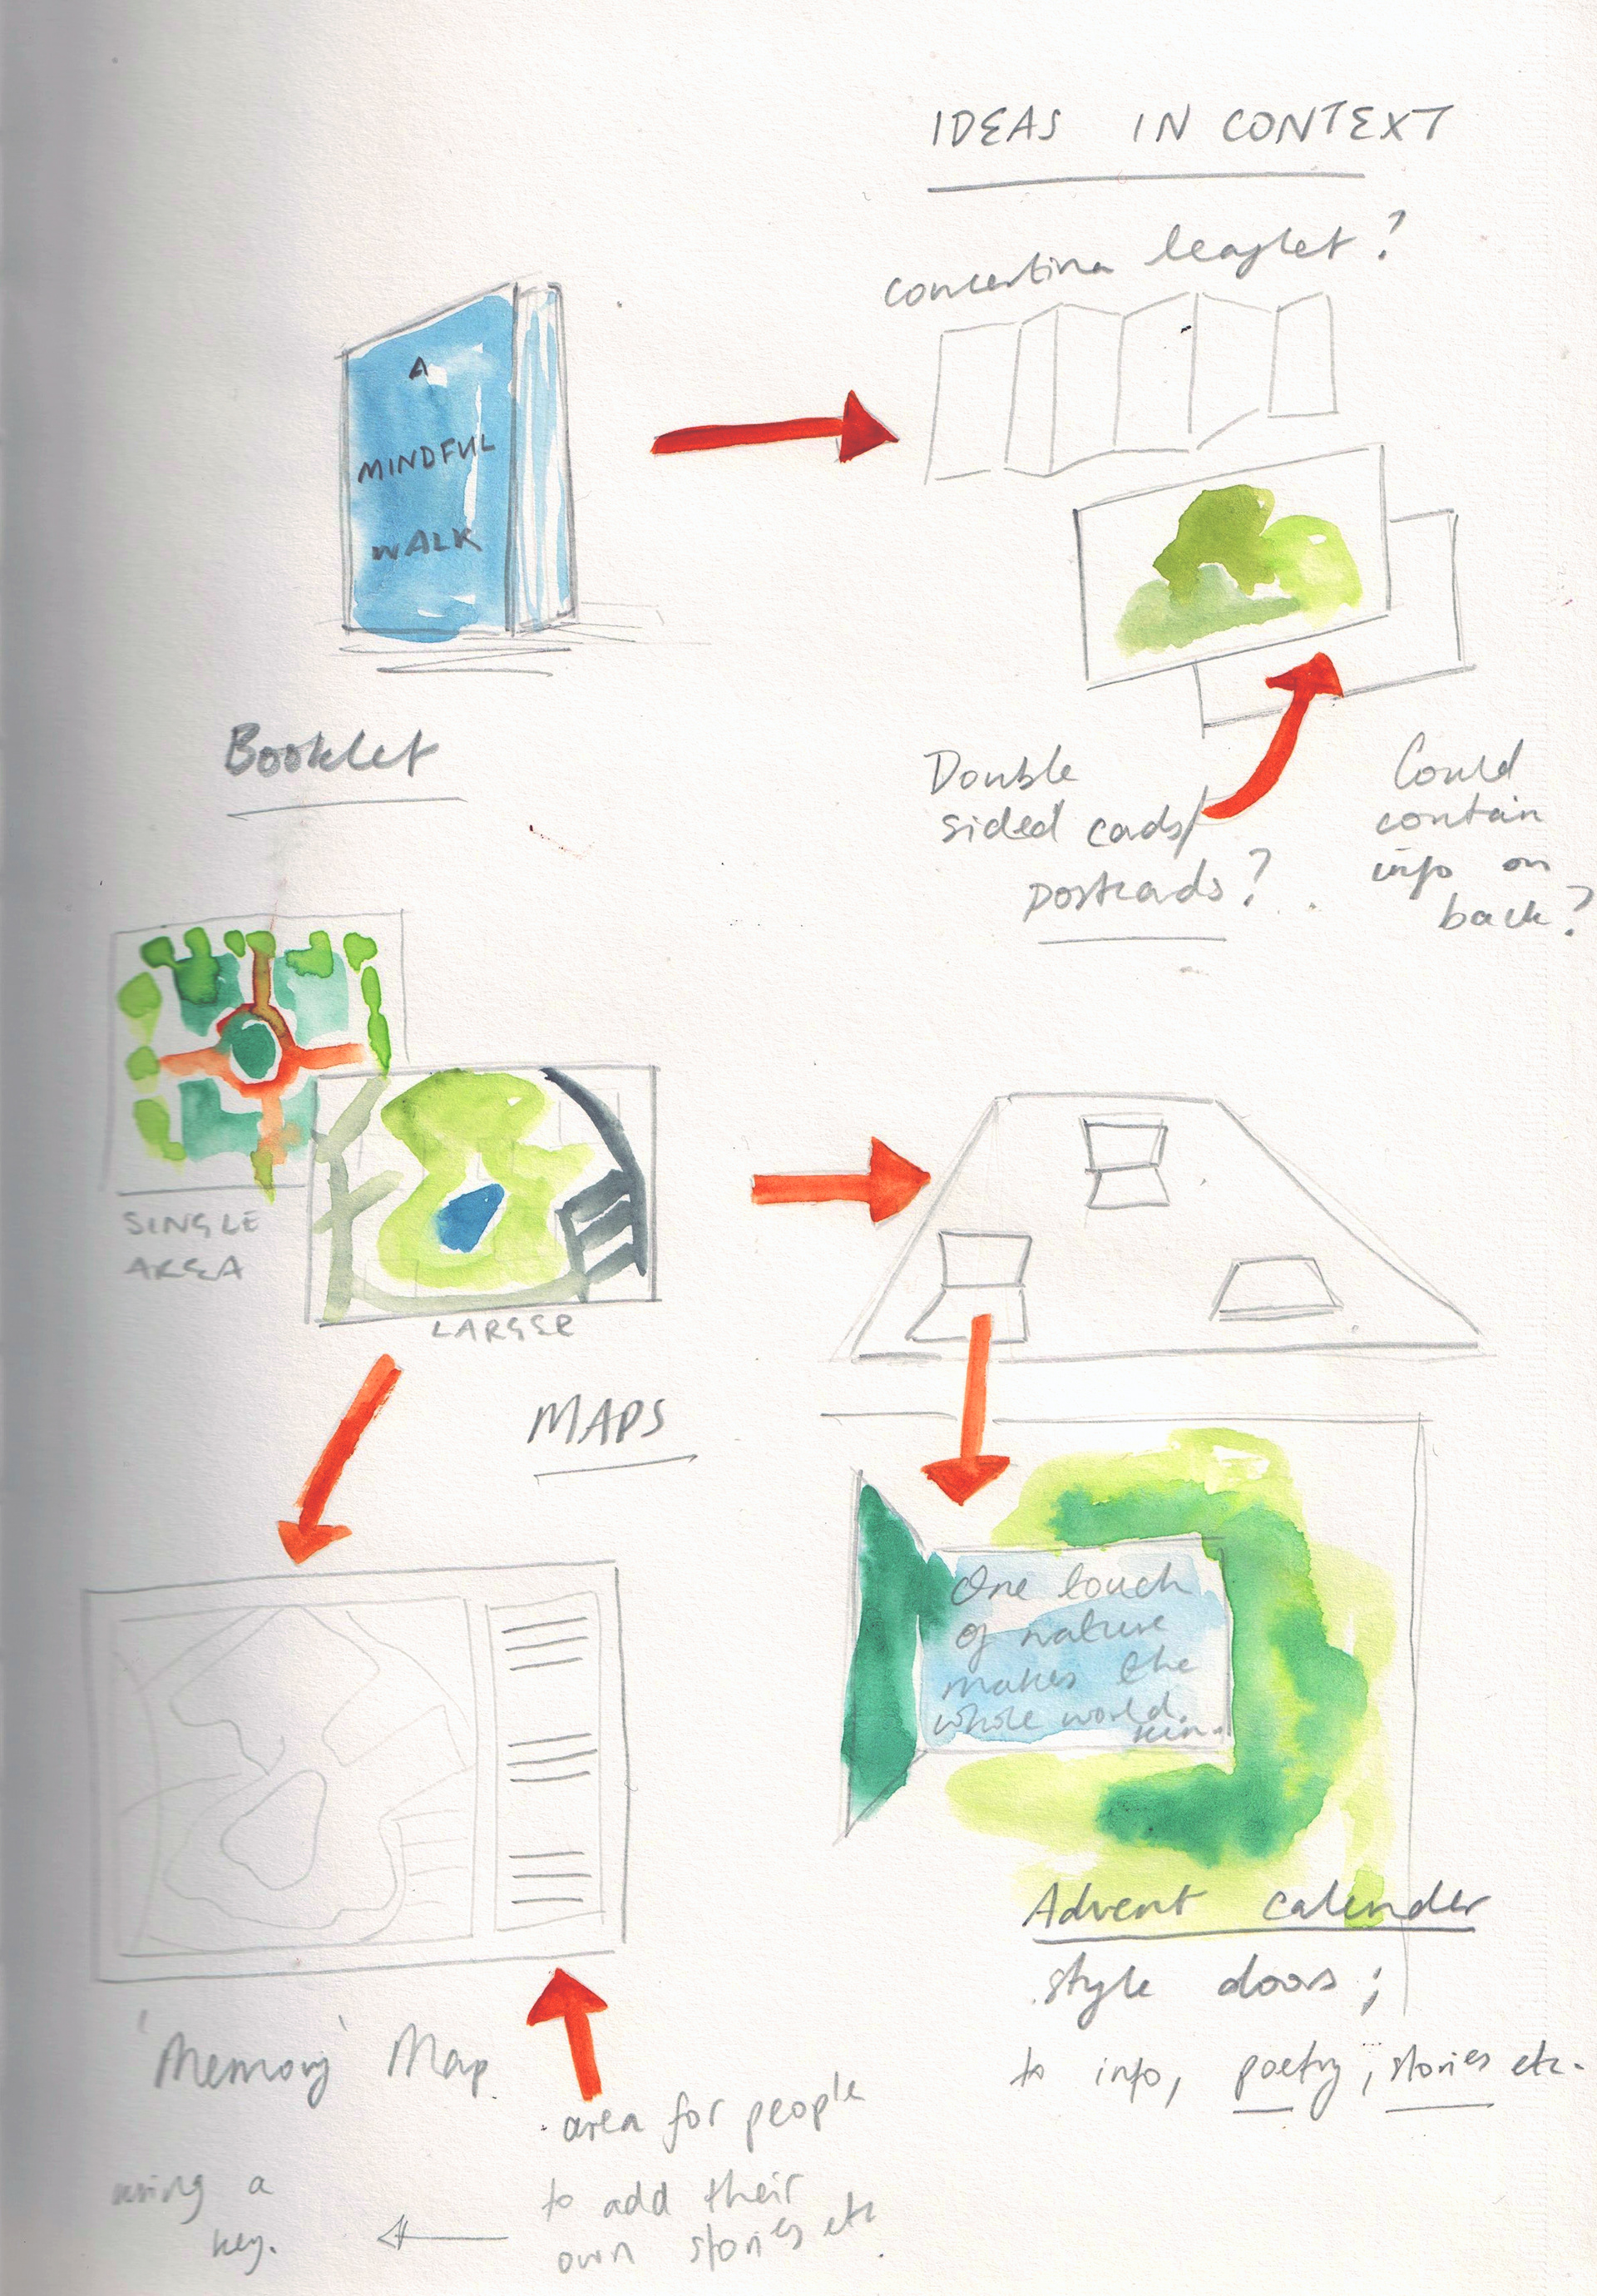 IDEAS IN CONTEXT
concertina leaflet?
A
MINDFUL
WALK
Booklet
Double
sided cards/
postcards?
Could
contain
info on
back?
SINGLE
AREA
LARGER
MAPS
One touch
of nature
makes the
whole world
kin.
Advent calender
style doors;
to info, poetry, stories etc.
'Memory' Map
area for people
to add their
own stories etc.
using a
key.